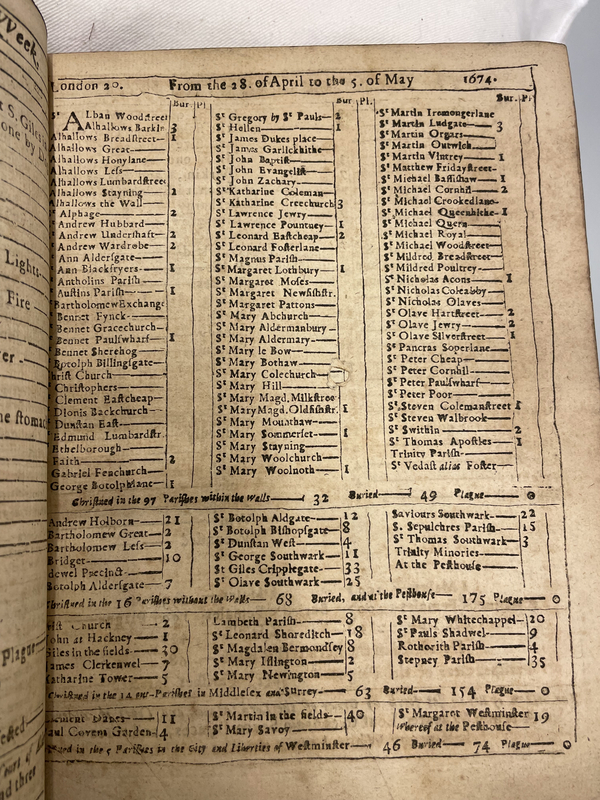 London 20. From the 28. of April to the 5. of May 1674.
Bur. Pl.
St Alban Woodstreet
Alhallows Barkin 3
Alhallows Breadstreet 1
Alhallows Great
Alhallows Honylane
Alhallows Less
Alhallows Lumbardstreet
Alhallows Stayning 2
Alhallows the Wall
St Alphage 2
St Andrew Hubbard
St Andrew Undershaft 2
St Andrew Wardrobe 2
St Ann Aldersgate
St Ann Blackfryers 1
St Antholins Parish
St Austins Parish 1
St Bartholomew Exchange
St Bennet Fynck
St Bennet Gracechurch
St Bennet Paulswharf 1
St Bennet Sherehog
St Botolph Billingsgate
Christ Church
St Christophers
St Clement Eastcheap
St Dionis Backchurch
St Dunstan East
St Edmund Lumbardstr.
St Ethelborough
St Faith 2
St Gabriel Fenchurch
St George Botolphlane 1
Bur Pl.
St Gregory by St Pauls 2
St Hellen 1
St James Dukes place
St James Garlickhithe
St John Baptist
St John Evangelist
St John Zachary
St Katharine Coleman
St Katharine Creechurch 3
St Lawrence Jewry
St Lawrence Pountney 1
St Leonard Eastcheap 2
St Leonard Fosterlane
St Magnus Parish
St Margaret Lothbury 1
St Margaret Moses
St Margaret Newfishstr.
St Margaret Pattons
St Mary Abchurch
St Mary Aldermanbury
St Mary Aldermary
St Mary le Bow
St Mary Bothaw
St Mary Colechurch
St Mary Hill
St Mary Magd. Milkstree
St Mary Magd. Oldfishstr. 1
St Mary Mounthaw
St Mary Sommerset 1
St Mary Stayning
St Mary Woolchurch
St Mary Woolnoth 1
Bur. Pl.
St Martin Iremongerlane
St Martin Ludgate 3
St Martin Orgars
St Martin Outwich
St Martin Vintrey 1
St Matthew Fridaystreet
St Michael Bassishaw 1
St Michael Cornhil 2
St Michael Crookedlane
St Michael Queenhithe 1
St Michael Quern
St Michael Royal
St Michael Woodstreet
St Mildred Breadstreet
St Mildred Poultrey
St Nicholas Acons 1
St Nicholas Coleabby
St Nicholas Olaves
St Olave Hartstreet 2
St Olave Jewry 2
St Olave Silverstreet 1
St Pancras Soperlane
St Peter Cheap
St Peter Cornhil
St Peter Paulswharf
St Peter Poor
St Steven Colemanstreet 1
St Steven Walbrook
St Swithin 2
St Thomas Apostles 1
Trinity Parish
St Vedast alias Foster
Christned in the 97 Parishes within the Walls 32 Buried 49 Plague 0
Andrew Holborn 21
Bartholomew Great 2
Bartholomew Less 2
Bridget 10
Bridewel Precinct
Botolph Aldersgate 7
St Botolph Aldgate 12
St Botolph Bishopsgate 8
St Dunstan West 4
St George Southwark 11
St Giles Cripplegate 33
St Olave Southwark 25
Saviours Southwark 22
S. Sepulchres Parish 15
St Thomas Southwark 3
Trinity Minories
At the Pesthouse
Christned in the 16 Parishes without the Walls 68 Buried, and at the Pesthouse 175 Plague 0
Christ Church 2
John at Hackney 1
Giles in the fields 30
James Clerkenwel 7
Katharine Tower 5
Lambeth Parish 8
St Leonard Shoreditch 18
St Magdalen Bermondsey 8
St Mary Islington 2
St Mary Newington 5
St Mary Whitechappel 20
St Pauls Shadwel 9
Rothorith Parish 4
Stepney Parish 35
Christned in the 14 out-Parishes in Middlesex and Surrey 63 Buried 154 Plague 0
Clement Danes 11
Paul Covent Garden 4
St Martin in the fields 40
St Mary Savoy
St Margaret Westminster 19
Whereof at the Pesthouse
Christned in the 5 Parishes in the City and Liberties of Westminster 46 Buried 74 Plague 0